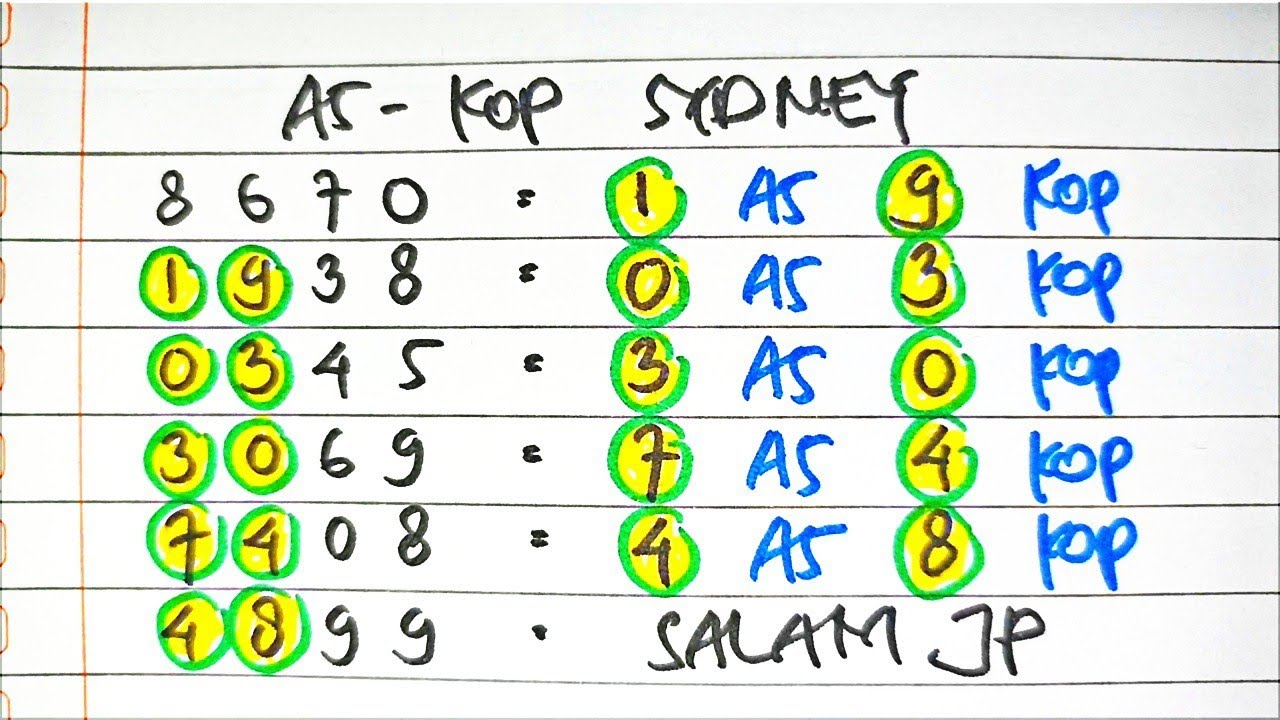 AS - KOP SYDNEY
8670 = 1 AS 9 KOP
1938 = 0 AS 3 KOP
0345 = 3 AS 0 KOP
3069 = 7 AS 4 KOP
7408 = 4 AS 8 KOP
4899 = SALAM JP